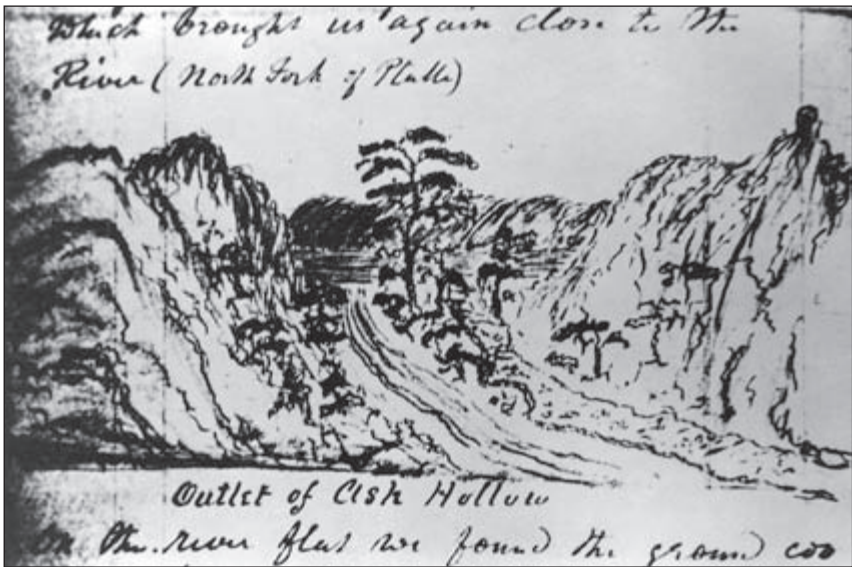 which brought us again close to the
River (North Fork of Platte)
Outlet of Ash Hollow
On the river flat we found the ground coo